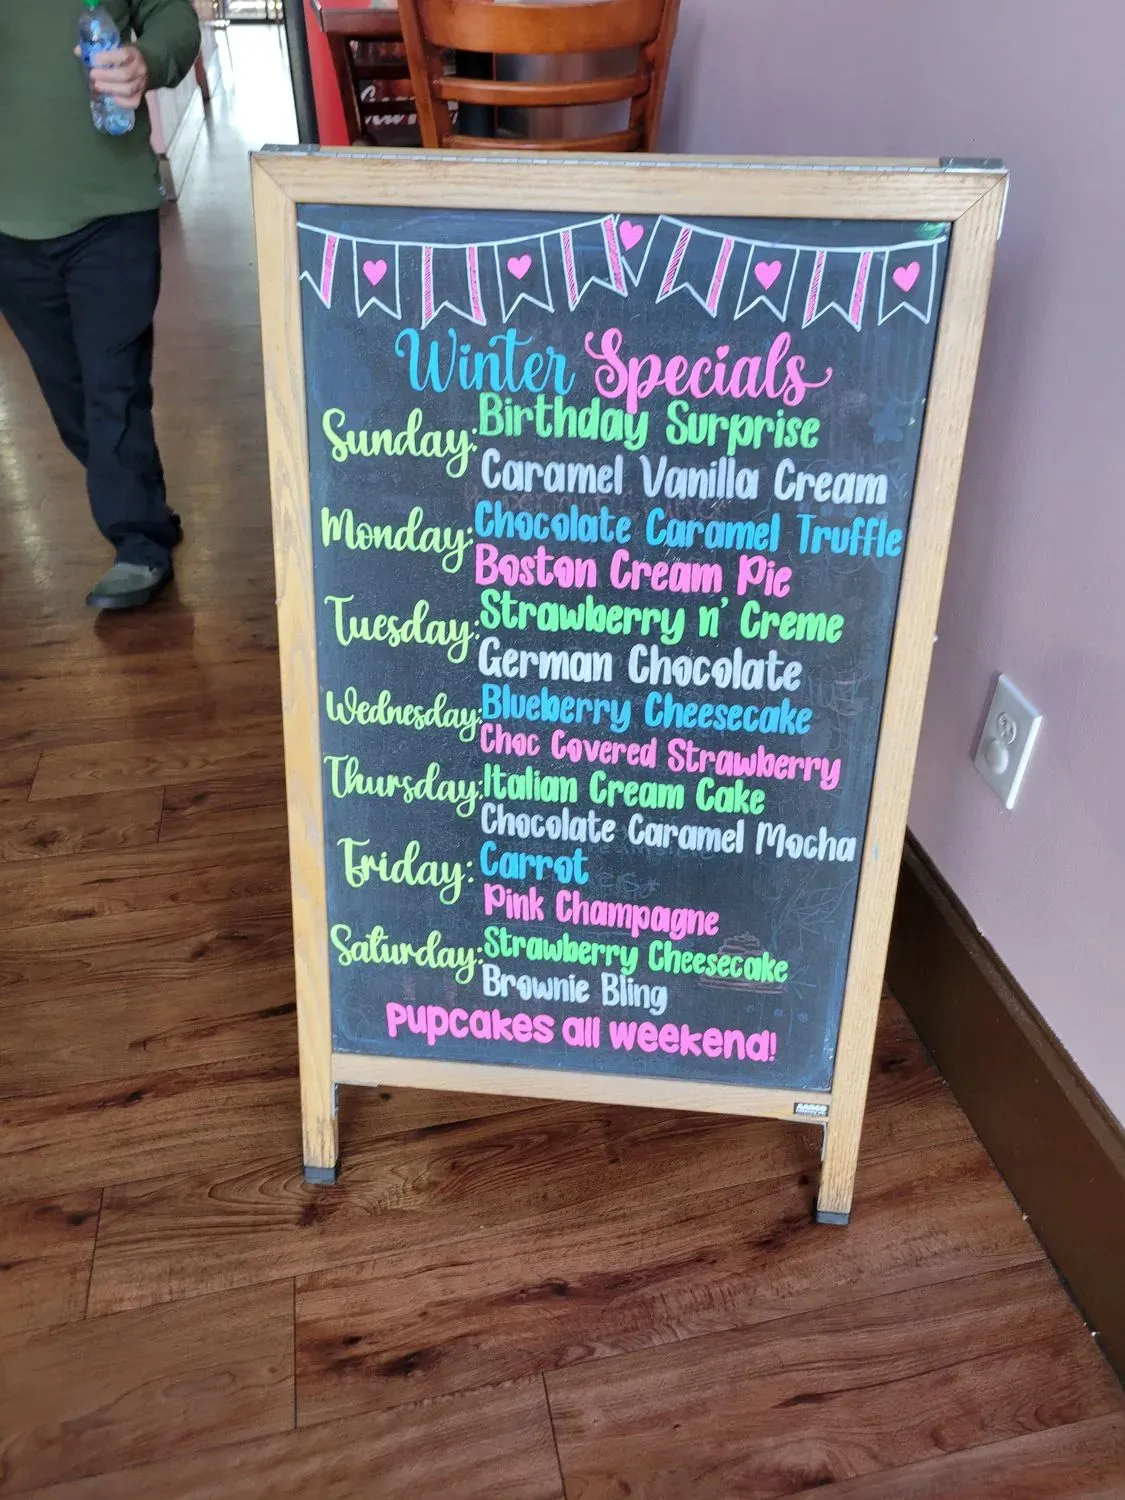 Winter Specials
Sunday: Birthday Surprise
Caramel Vanilla Cream
Monday: Chocolate Caramel Truffle
Boston Cream Pie
Tuesday: Strawberry n' Creme
German Chocolate
Wednesday: Blueberry Cheesecake
Choc Covered Strawberry
Thursday: Italian Cream Cake
Chocolate Caramel Mocha
Friday: Carrot
Pink Champagne
Saturday: Strawberry Cheesecake
Brownie Bling
Pupcakes all weekend!